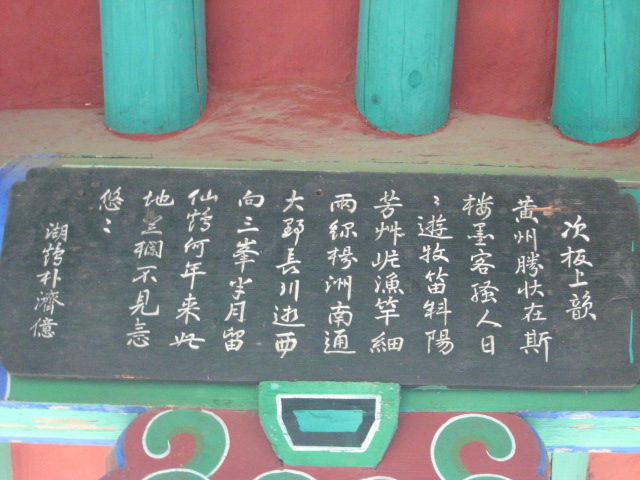 次板上韻
黃州勝狀在斯
樓墨客騷人日
〻遊牧笛斜陽
芳艸岸漁竿細
雨綠楊洲南通
大野長川逝西
向三峯半月留
仙鶴何年來此
地欄不見意
悠〻
湖鶴朴濟億